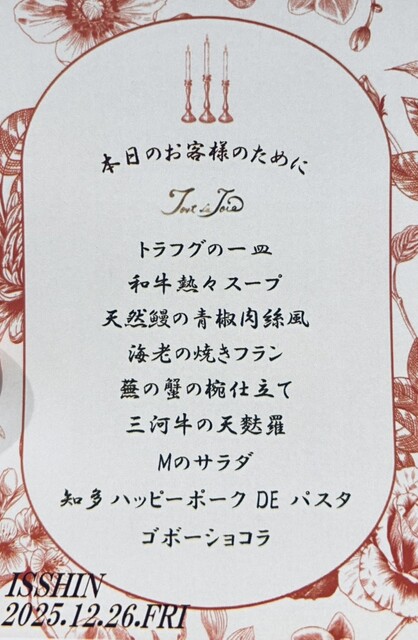 本日のお客様のために
Tout La Joie
トラフグの一皿
和牛熱々スープ
天然鰻の青椒肉絲風
海老の焼きフラン
蕪の蟹の椀仕立て
三河牛の天麩羅
Mのサラダ
知多ハッピーポーク DE パスタ
ゴボーショコラ
ISSHIN
2025.12.26.FRI